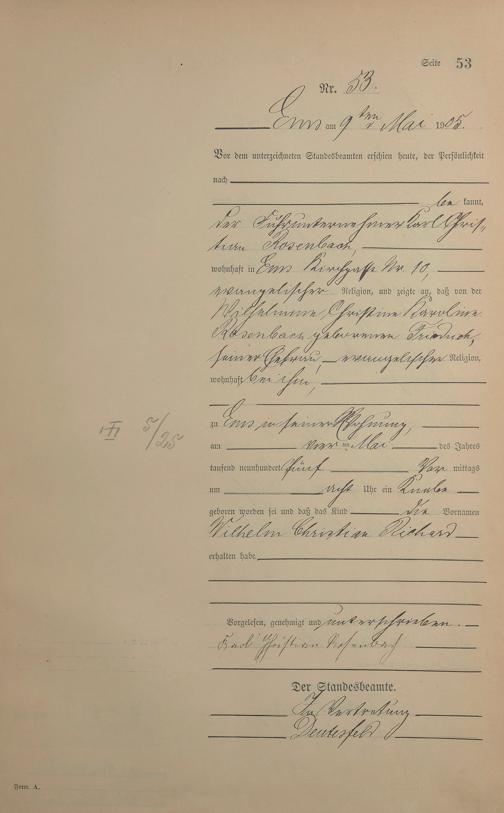 Seite 53
Nr. 53.
Ems am 9ten Mai 1905.
Vor dem unterzeichneten Standesbeamten erschien heute, der Persönlichkeit
nach
be kannt,
der Fuhrunternehmer Karl Chris-
tian Rosenbach,
wohnhaft in Ems Kirchgasse Nr. 10,
evangelischer Religion, und zeigte an, daß von der
Wilhelmine Christine Karoline
Rosenbach geborenen Friedrich,
seiner Ehefrau, evangelischer Religion,
wohnhaft bei ihm,
zu Ems in seiner Wohnung,
III 5/25
am vierten Mai des Jahres
tausend neunhundert fünf Vor mittags
um acht Uhr ein Knabe
geboren worden sei und daß das Kind die Vornamen
Wilhelm Christian Richard
erhalten habe.
Vorgelesen, genehmigt und unterschrieben.
Karl Christian Rosenbach
Der Standesbeamte.
In Vertretung
Form. A.